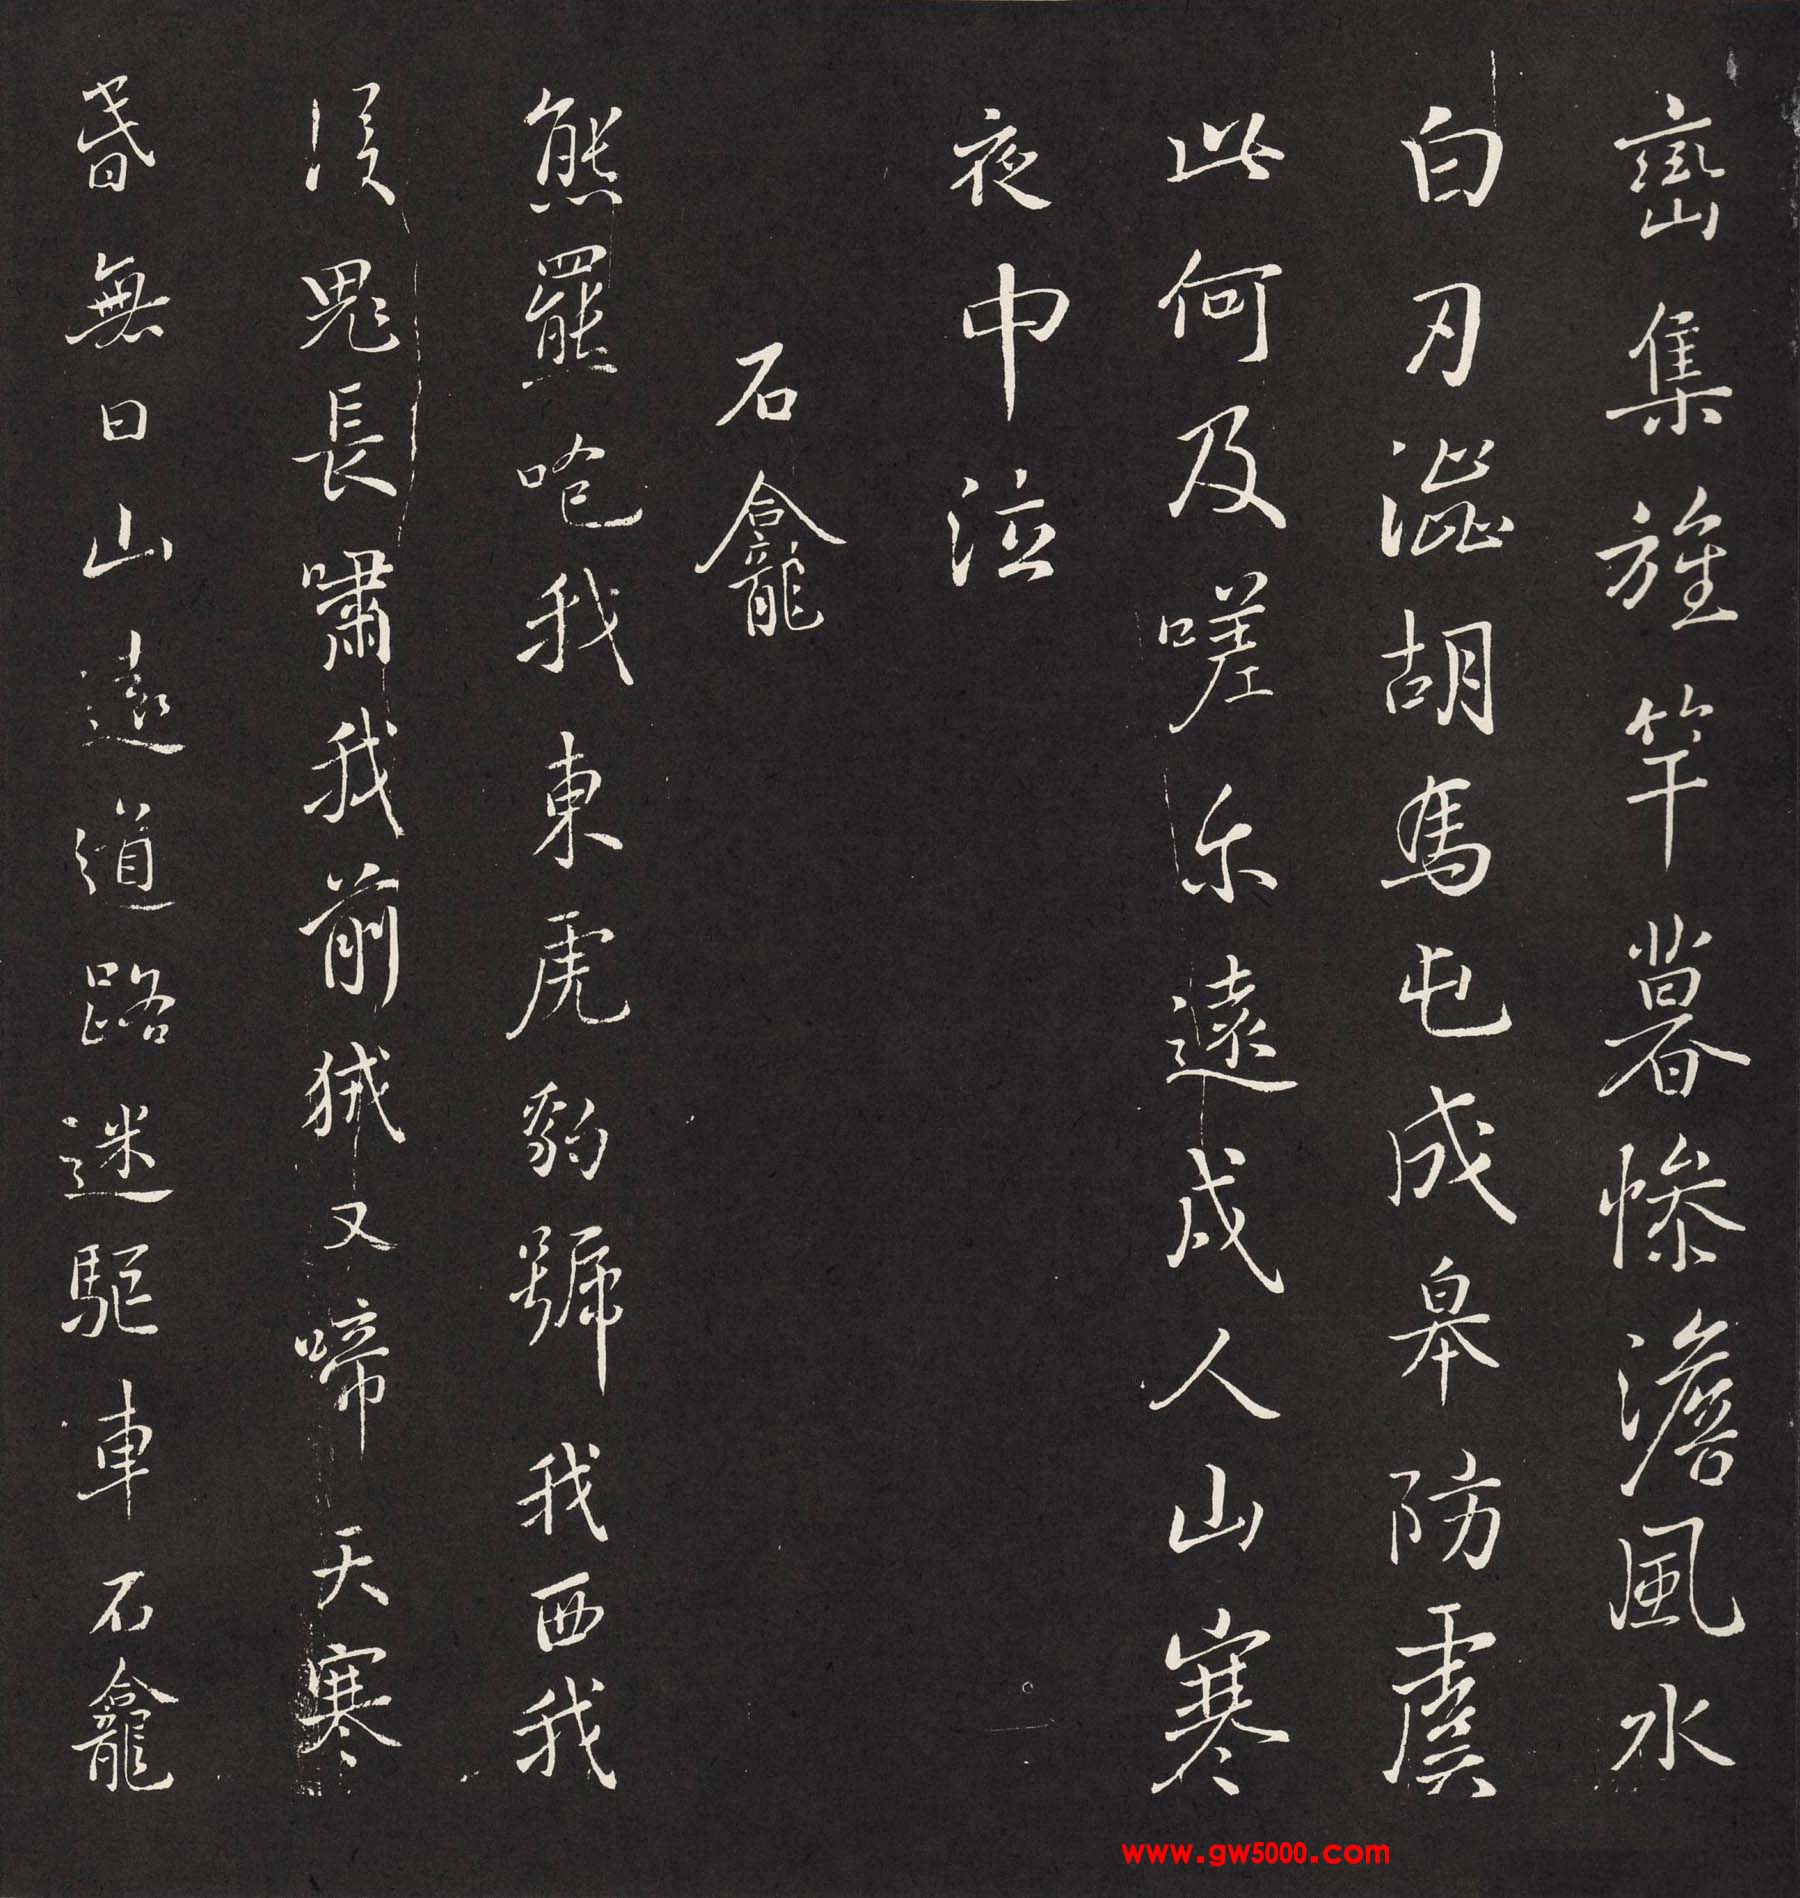 巒集旌竿暮慘澹風水
白刃澁胡馬屯成皋防虞
此何及嗟尓遠戍人山寒
夜中泣
石龕
熊羆咆我東虎豹號我西我
後鬼長嘯我前狨又啼天寒
昏無日山遠道路迷驅車石龕
www.gw5000.com